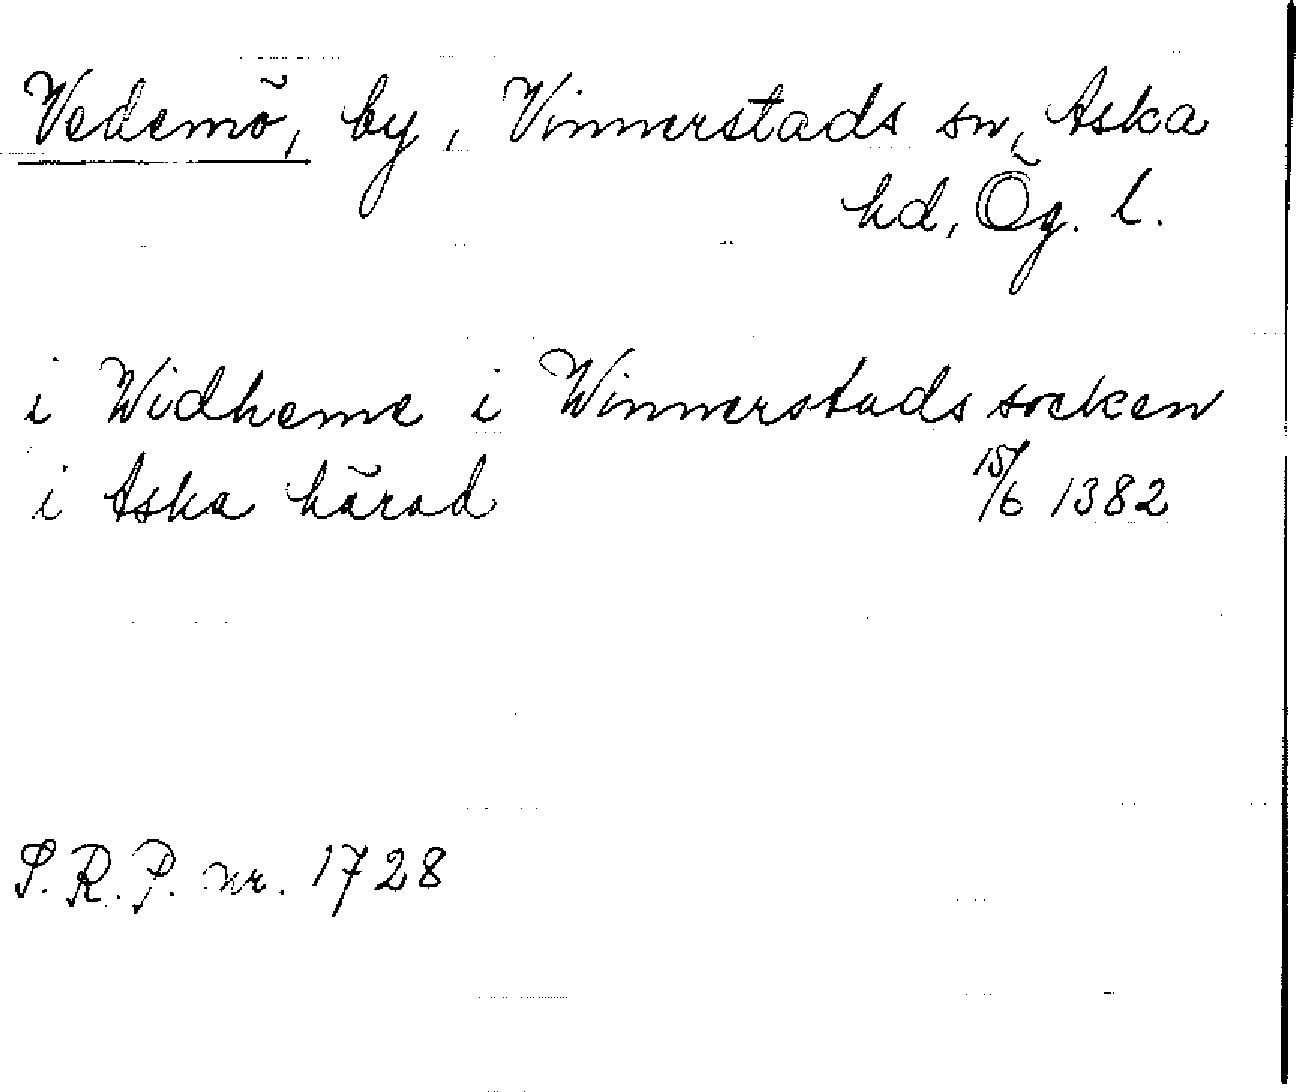 Vedemö, by, Vinnerstads sn, Aska
hd, Ög. l.
i Widheme i Winnerstads socken
i Aska härad 15/6 1382
S.R.P. nr. 1728